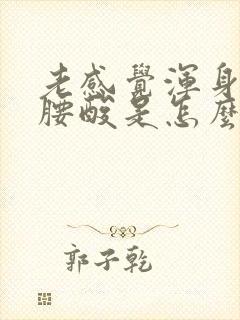 老感覺渾身
腰酸是怎麼
郭子乾